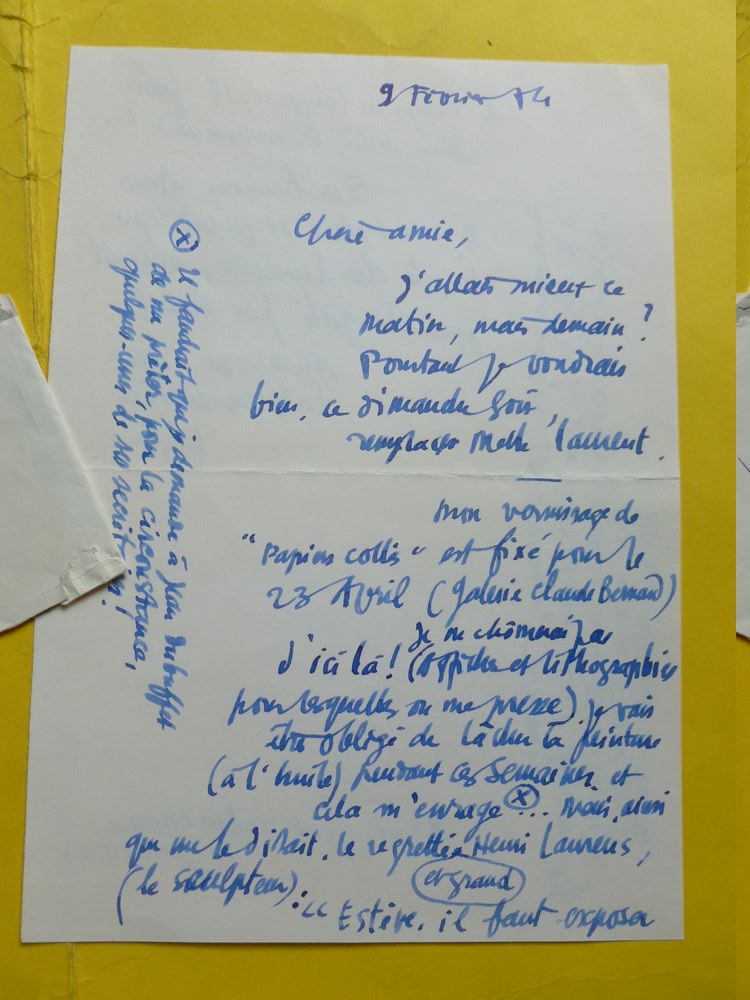 9 Février 74
Chère amie,
J'allais mieux ce
matin, mais demain?
Pourtant je voudrais
bien, ce dimanche soir,
remplacer Melle Laurent.
mon vernissage de
"Papiers collés" est fixé pour le
23 Avril (Galerie Claude Bernard)
Je ne chômerai pas
d'ici là! (Affiche et lithographies
pour lesquelles on me presse) je vais
être obligé de lâcher la peinture
(à l'huile) pendant ces semaines et
cela m'enrage (x)... Mais, ainsi
que me le disait, le regretté Henri Laurens,
et grand
(le sculpteur) : "Estève, il faut exposer
(x) Il faudrait que je demande à Jean Dubuffet
de me prêter, pour la circonstance,
quelques-uns de ses secrétaires!